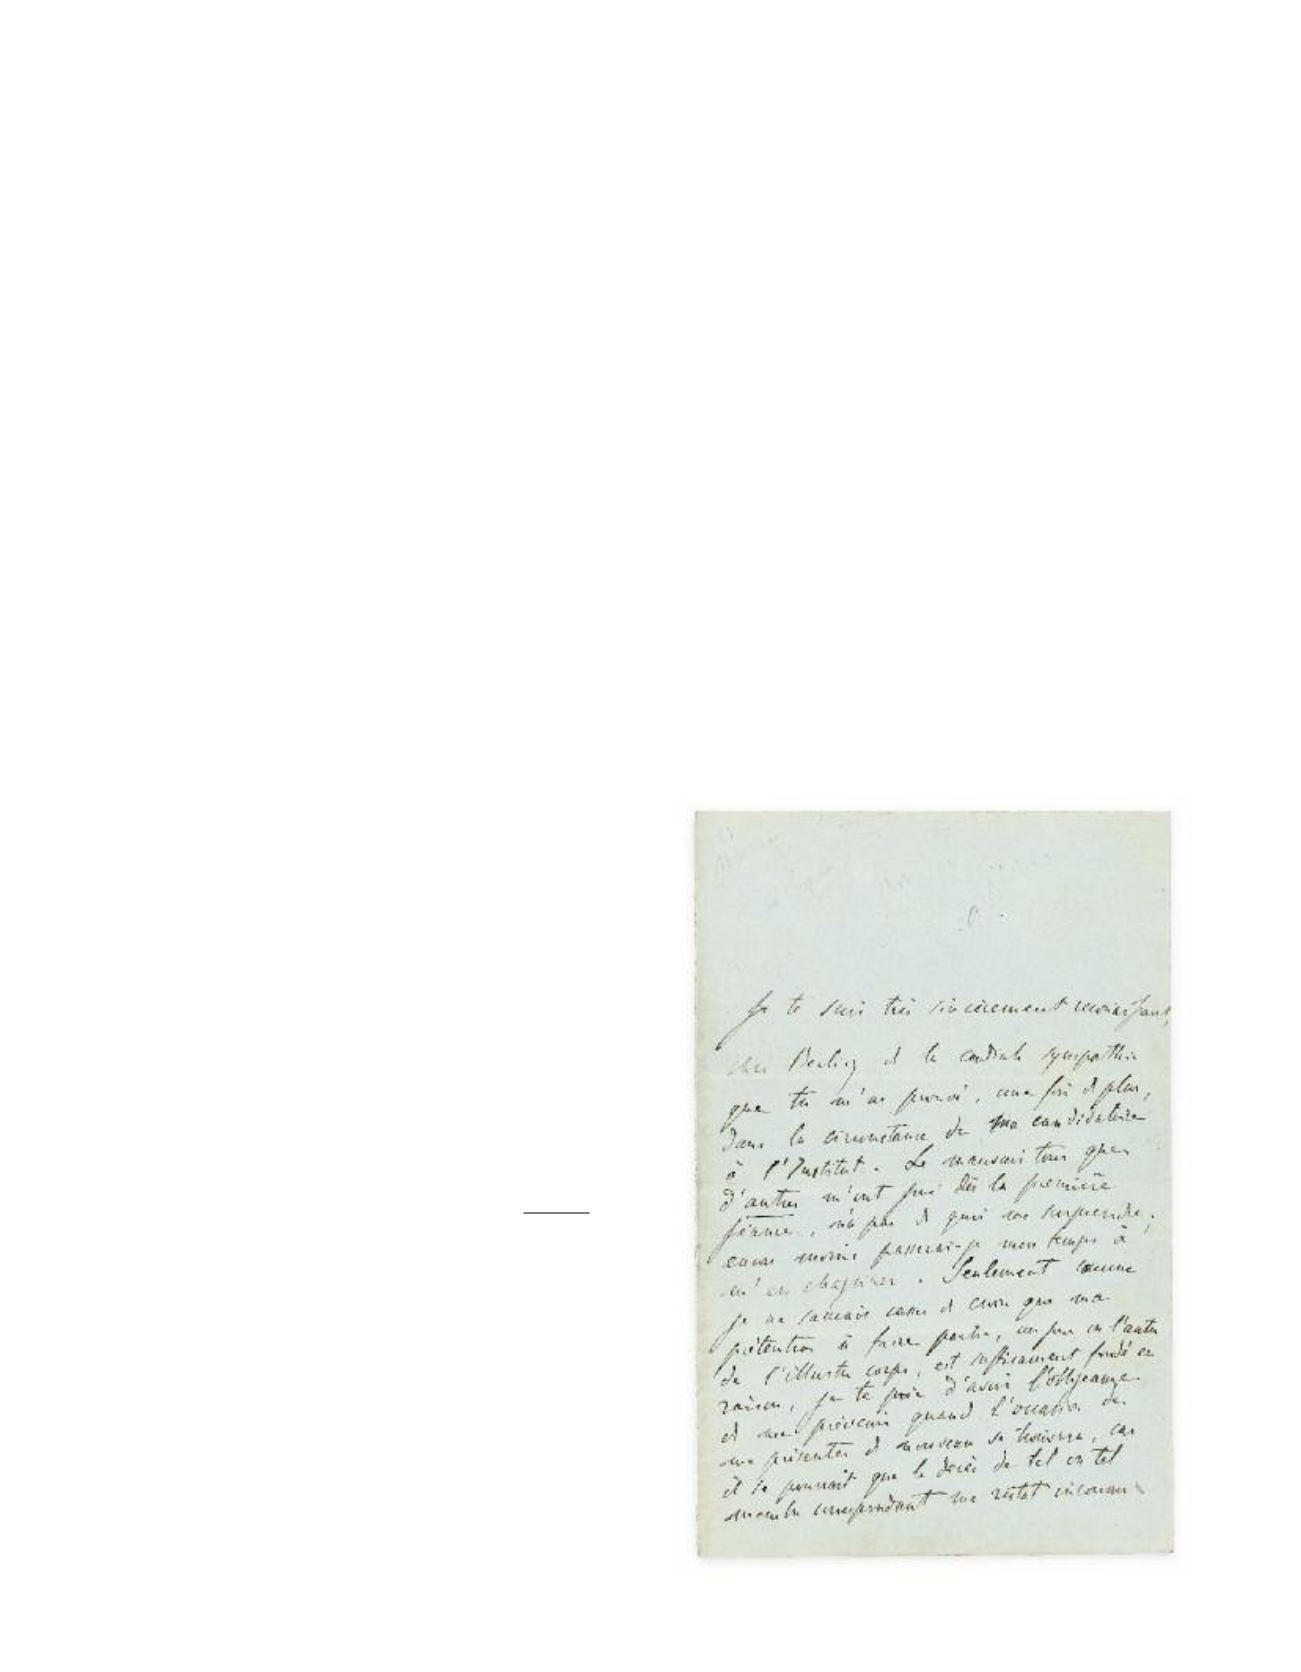 Je te suis très sincèrement reconnaissant,
cher Berlioz de la cordiale sympathie
que tu m'as prouvé, une fois de plus,
dans la circonstance de ma candidature
à l'Institut. Le mauvais tour que
d'autres m'ont joué dès la première
séance, n'a pas de quoi me surprendre;
encore moins passerai-je mon temps à
m'en chagriner. Seulement comme
je ne saurais cesser de croire que ma
prétention à faire partie, un jour ou l'autre
de l'illustre corps, est suffisament fondé en
raison, je te prie d'avoir l'obligeance
de me prévenir quand l'occasion de
me présenter de nouveau se trouvera, car
il se pourrait que le décès de tel ou tel
membre correspondant me restat inconnu